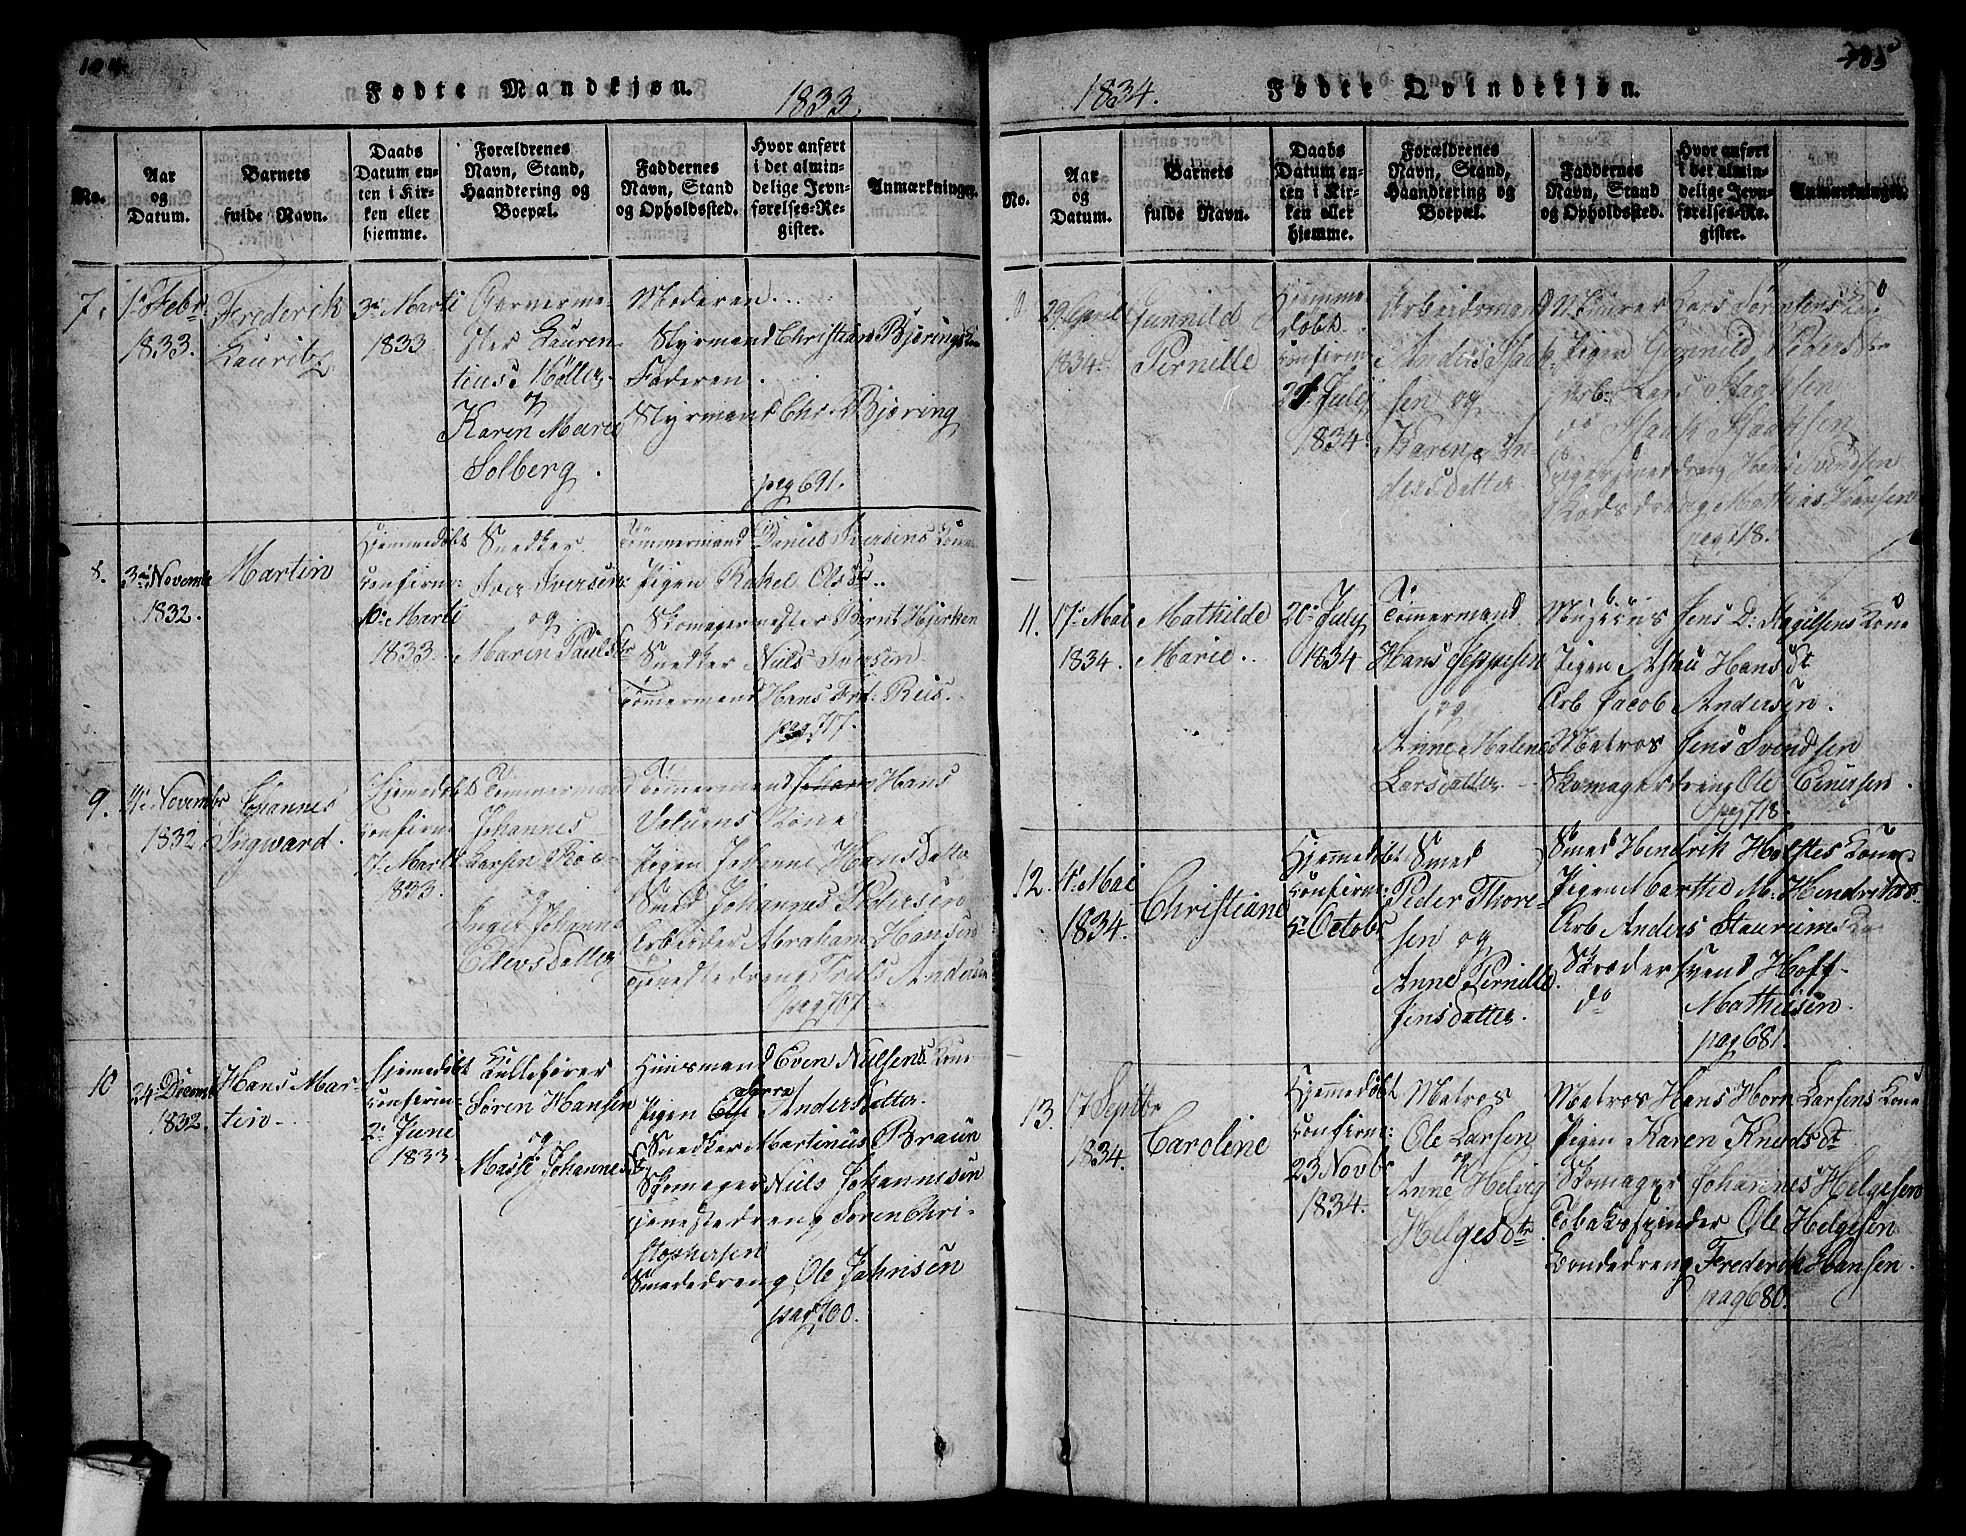 104
Fødte Mandkjøn.
1833.
No.
Aar
og
Datum.
Barnets
fulde Navn.
Daabs
Datum en-
ten i Kir-
ken eller
hjemme.
Forældrenes
Navn, Stand,
Haandtering og
Boepæl.
Faddernes
Navn, Stand
og Opholdssted.
Hvor anført
i det almin-
delige Jevn-
førelses-Re-
gister.
Anmærkninger.
7.
1 Febr.
1833.
Frederik
Lauritz
3 Marti
1833
Garverme-
ster Lauren-
tius Møller
og
Karen Marie
Solberg.
Moderen...
Styrmand Christian Bjørings
Faderen.
Styrmand Chr. Bjøring
pag 691.
8.
3 Novembr
1832.
Martin
Hjemmedøbt
confirm:
10 Marti
1833
Snedker
Iver Iversen
og
Maren Pauls
Tømmermand Daniel Iversens Kone
Pigen Rakel Ols
Skomagermester Bernt Hjerken
Snedker Niels Iversen
Tømmermand Hans Frd. Reis.
pag 717.
9.
4 Novembr
1832
Johannes
Ingward.
Hjemmedøbt
confirm
17 Marti
1833.
Tømmermand
Johannes
Larsen Röe
og
Inger Johanne
Ellevsdatter
Tømmermand Johan Hans
Kone
Pigen Johanne Hansdatter
Smed Johannes Pedersen
Arbeider Abraham Hansen
Tjenestedreng Truls Andersen
pag 707.
10
24 Decembr
1832.
Hans Mar-
tin
Hjemedøbt
confirm
2 June
1833.
Kulleførер
Søren Hansen
og
Massi Johannes
Huusmand Even Nielsens Kone
Pigen Else Andersdatter.
Snedker Martinus Braun
Skomager Niels Johannesen
Tjenestedreng Søren Chri-
stophersen
Smededreng Ole Jahnsen
pag 700.
705
1834.
Fødte Qvindekjøn.
No.
Aar
og
Datum.
Barnets
fulde Navn.
Daabs
Datum en-
ten i Kir-
ken eller
hjemme.
Forældrenes
Navn, Stand,
Haandtering og
Boepæl.
Faddernes
Navn, Stand
og Opholdssted.
Hvor anført
i det almin-
delige Jevn-
førelses-Re-
gister.
Anmærkninger.
29 April
1834
Gunnild
Pernille
Hjemme
døbt
confirm
27 July
1834
Arbeidsmand
Anders Isak-
sen og
Karen An-
dersdatter
Muurer Lars
Pigen Gunnild Peders
Arb: Lars Isaksen
do Isaak Isaksen
Hans Svendsen
Mathias Hansen
pag 718.
11.
17 Mai
1834.
Mathilde
Marie.
20 July
1834
Tømmermand
Hans Jeppesen
og
Anne Malene
Larsdatter
Jens D: Kone
Pigen Hansdt
Arb Jacob Andersen.
Matros Jens Svendsen
Skomagerdreng Ole Einersen
pag 718.
12.
4 Mai
1834.
Christiane
Hjemmedøbt
confirm:
5 Octobr
Smed
Peder Thore-
sen og
Anne Pernille
Jensdatter.
Smed Hendrik Holstes Kone
Pigen Marthe M: Hendriks
Arb Anders
Skrædersvend Hoff-
do Mathiesen
pag 681.
13.
17 Septbr
1834.
Caroline
Hjemmedøbt
confirm:
23 Novbr
1834.
Matros
Ole Larsen
og
Anne Helvig
Helgesdtr
Matros Hans Horn Larsens Kone
Pigen Karen Knudsdt
Skomager Johannes Helgesen
Tobakspinder Ole Helgesen
Bondedreng Frederik Hansen.
pag 680.